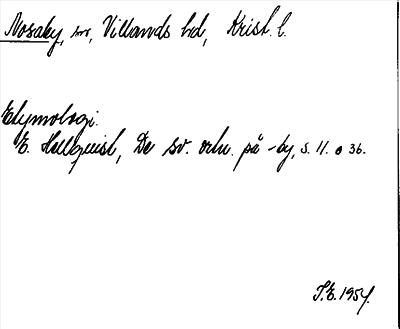 Nosaby, sn, Villands hd, Krist. l.
Etymologi.
E. Hellquist, De sv. ortn. på -by, s. 11. o 36.
I.E. 1954.